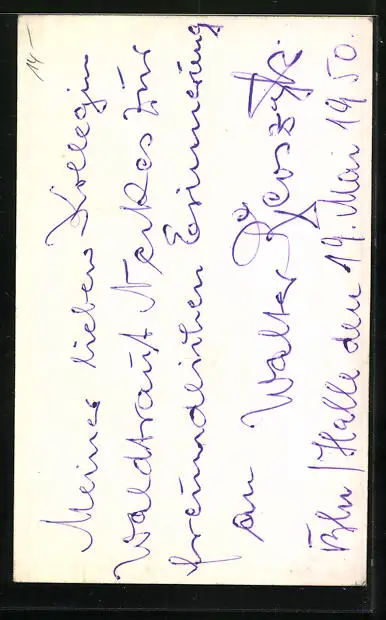 Meiner lieben Kollegin
Waldtraut Nerkas zur
freundlichen Erinnerung
an Walter
Bln / Halle den 19. Mai 1950.
14-